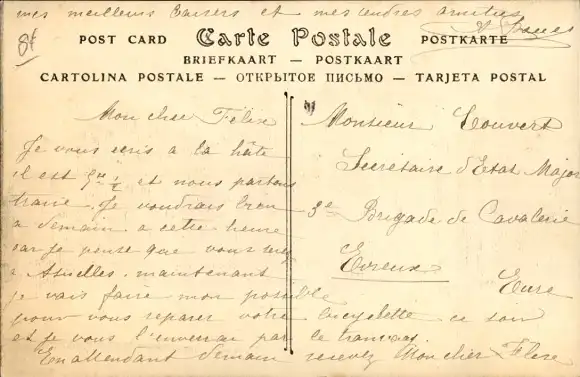 mes meilleurs baisers et mes tendres amitiés
POST CARD Carte Postale POSTKARTE
BRIEFKAART — POSTKAART
CARTOLINA POSTALE — ОТКРЫТОЕ ПИСЬМО — TARJETA POSTAL
Mon cher Félix
Je vous ecris a la hâte
il est 9h 1/2 et nous partons
Je voudrais bien
a demain a cette heure
car je pense que vous
maintenant
je vais faire mon possible
pour vous reparer votre bicyclette ce soir
et je vous l'enverrai par le tramway
En attendant demain recevez Mon cher Félix
Monsieur Louvert
Secrétaire d'Etat Major
3e Brigade de Cavalerie
Evreux
Eure